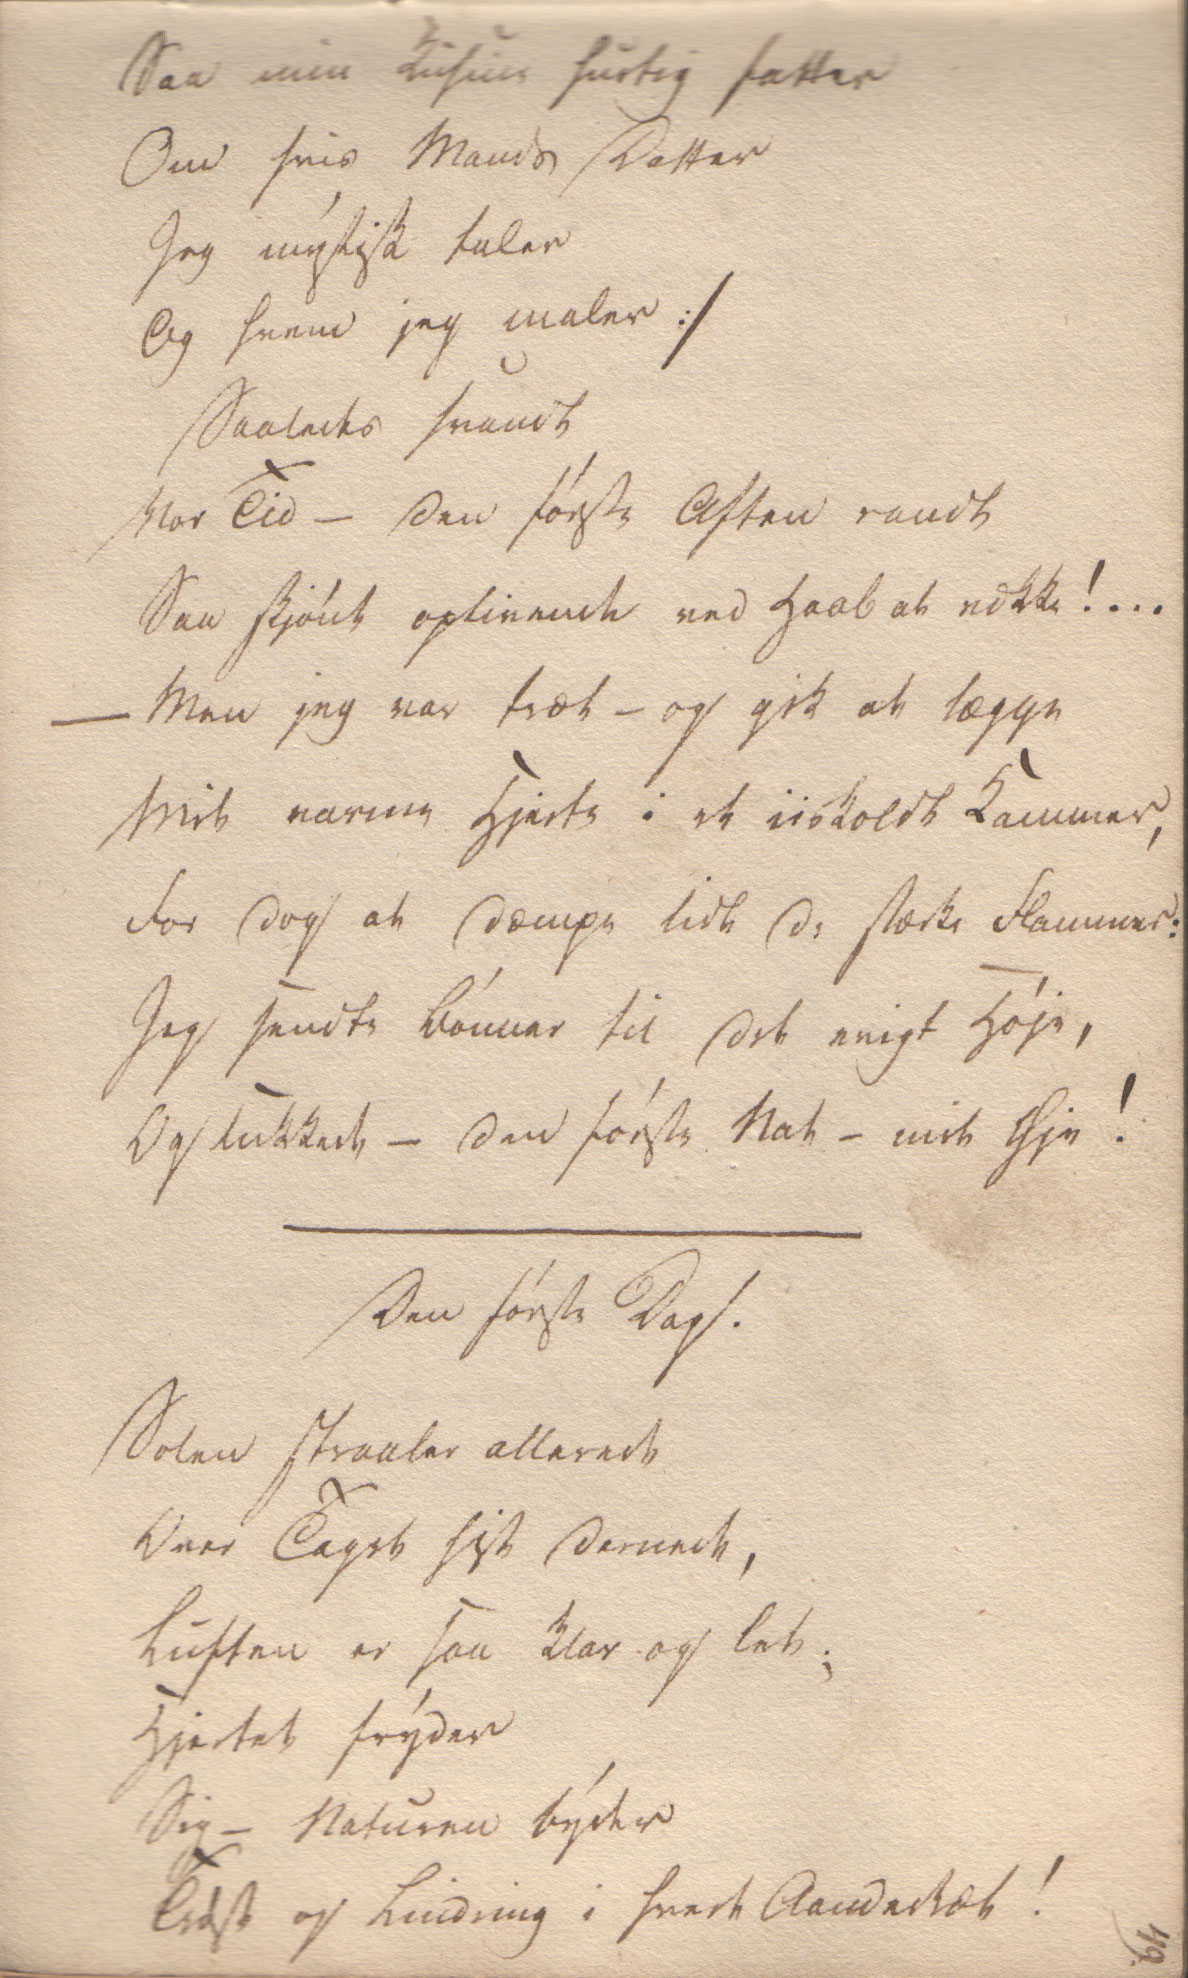 Saa min Cusine hurtig fatter
Om hvis Mands Datter
Jeg mÿstisk taler
Og hvem jeg maler :/
Saaledes svandt
Vor Tid — den første Aften randt
Saa skjønt oplivende ved Haab at vække! ...
— Men jeg var træt — og gik at lægge
Mit varme Hjerte i et iiskoldt Kammer,
For dog at dæmpe lidt de stærke Flammer:
Jeg sendte Bønner til det evigt Høje,
Og lukkede — den første Nat — mit Øje!
Den første Dag.
Solen straaler allerede
Over Taget hist dernede,
Luften er saa klar og let;
Hjertet frÿder
Sig — Naturen bÿder
Trøst og Lindring i hvert Aandedræt!
49.